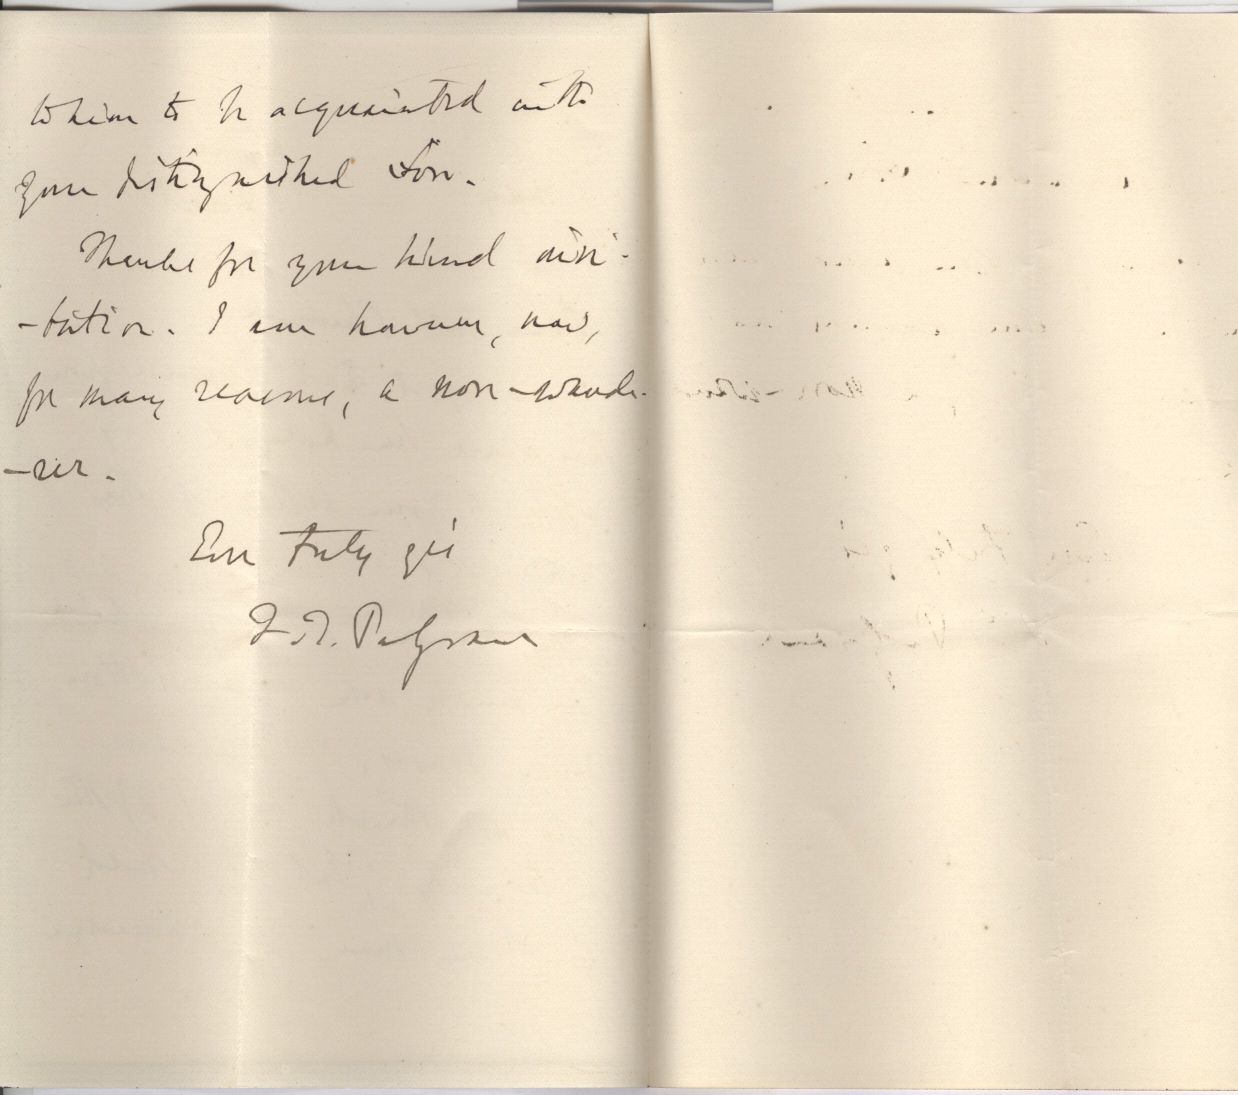 to him to be acquainted with
your distinguished Son.
Thanks for your kind invi-
-tation. I am however, now,
for many reasons, a non-wande-
-rer.
Ever truly yrs
F. T. Palgrave